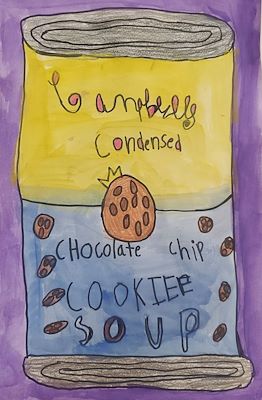 Campbells
Condensed
CHocolate CHip
COOKIEE
SOUP